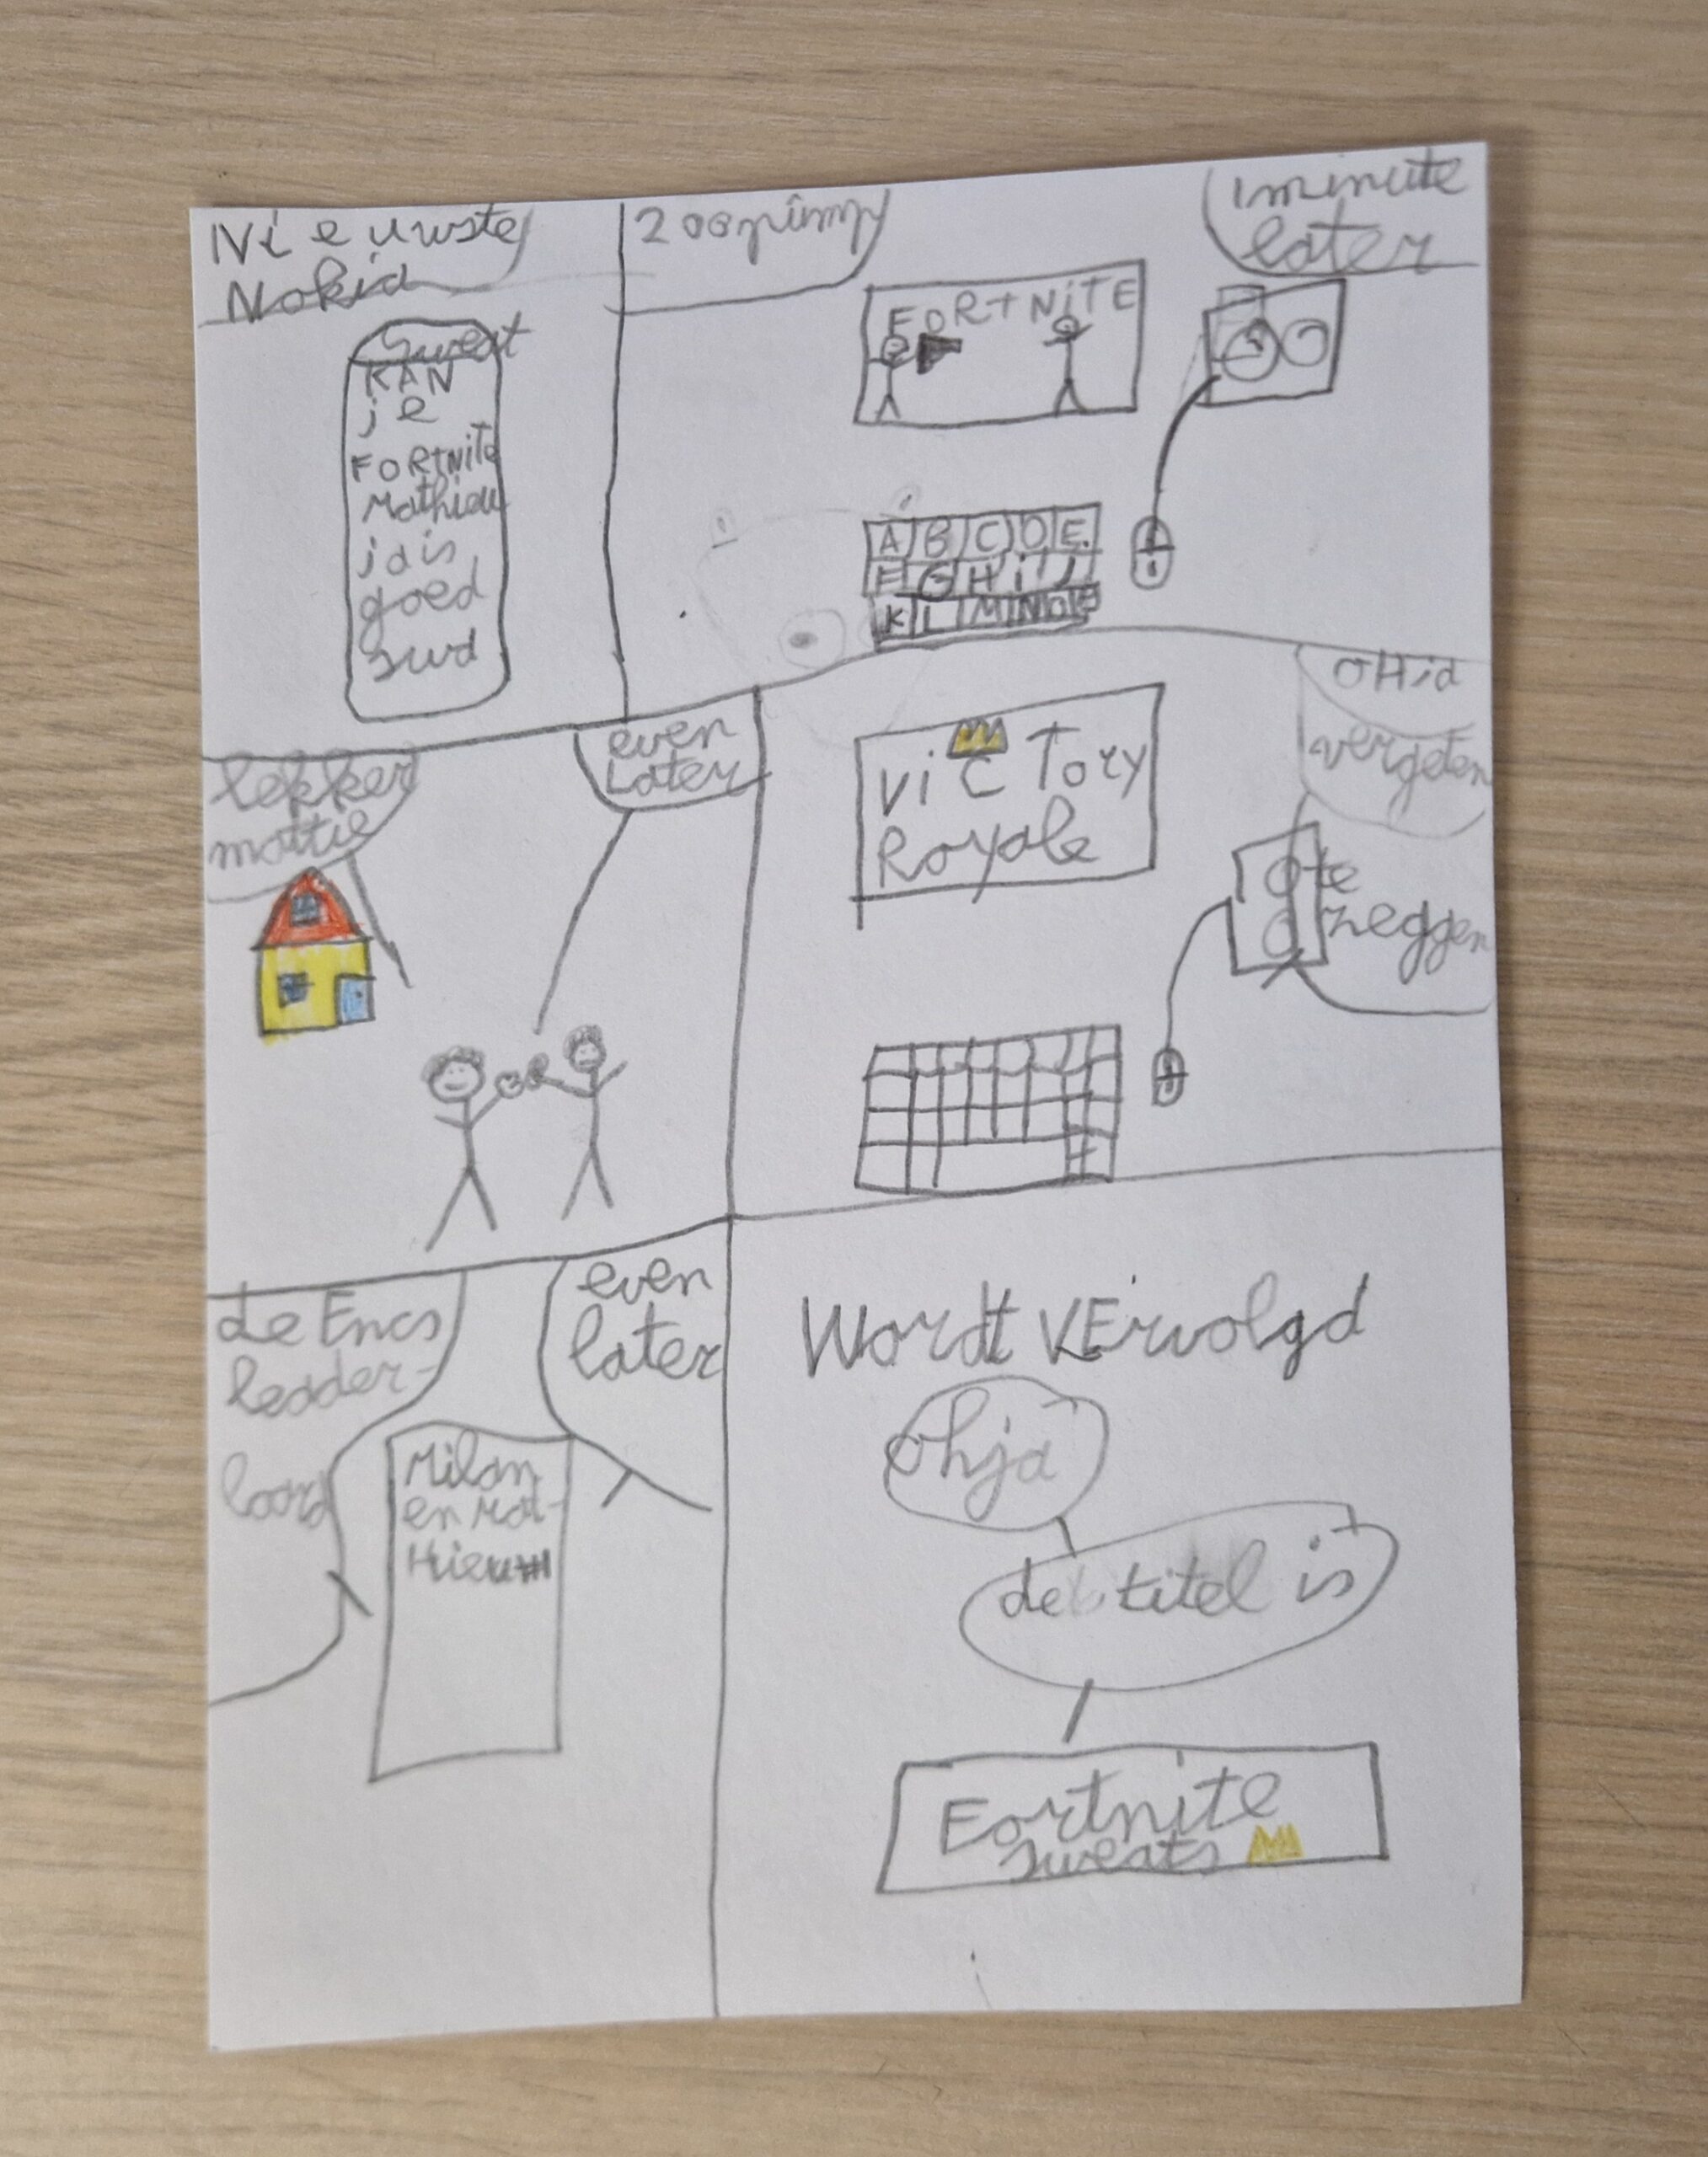 Nieuwste
Nokia
Sweat
KAN
je
FORTNiTe
Mathieu
ja is
goed
200
1 minute
later
FORTNiTE
A B C D E
F G H i J
K L M N O P
lekker
mattie
even
Later
ViCTory
Royale
oH ja
vergeten
te
zeggen
de Encs
leader-
board
even
later
Milan
en Mat-
Hieu
Wordt VErvolgd
ohja
de titel is
Fortnite
sweats